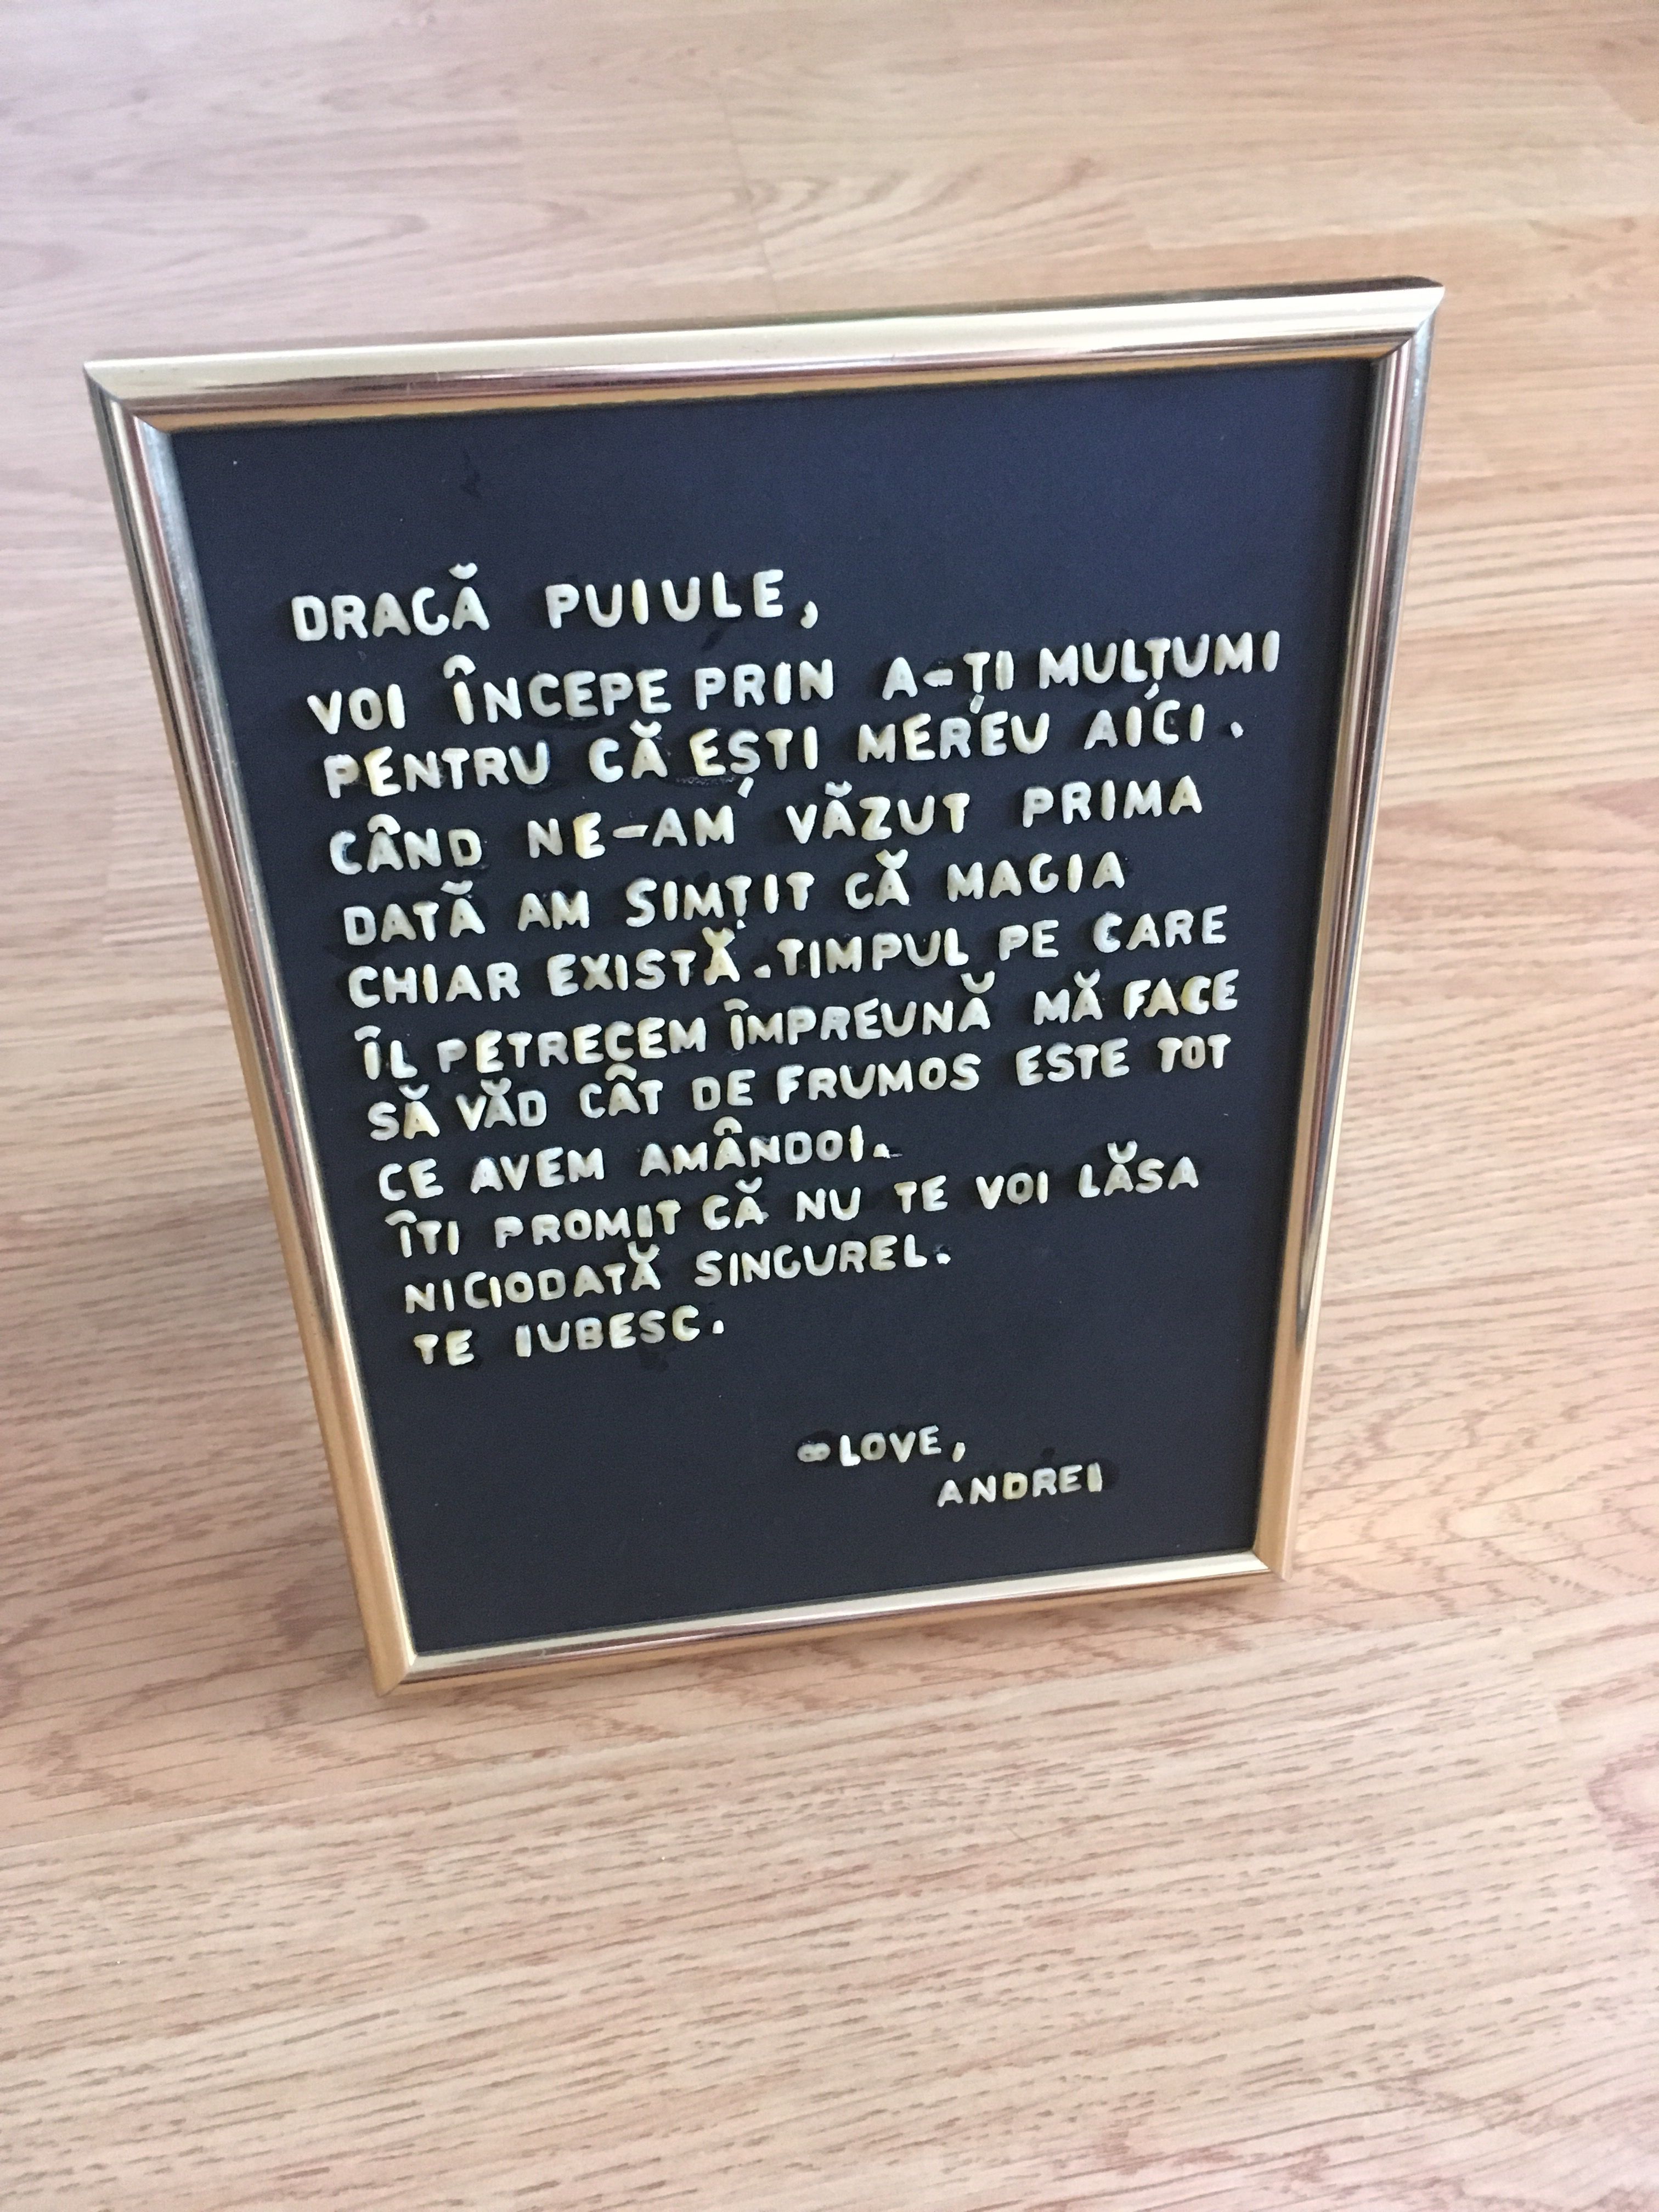 DRAGĂ PUIULE,
VOI ÎNCEPE PRIN A-ȚI MULȚUMI
PENTRU CĂ EȘTI MEREU AICI.
CÂND NE-AM VĂZUT PRIMA
DATĂ AM SIMȚIT CĂ MAGIA
CHIAR EXISTĂ. TIMPUL PE CARE
ÎL PETRECEM ÎMPREUNĂ MĂ FACE
SĂ VĂD CÂT DE FRUMOS ESTE TOT
CE AVEM AMÂNDOI.
ÎTI PROMIT CĂ NU TE VOI LĂSA
NICIODATĂ SINGUREL.
TE IUBESC.
∞ LOVE,
ANDREI